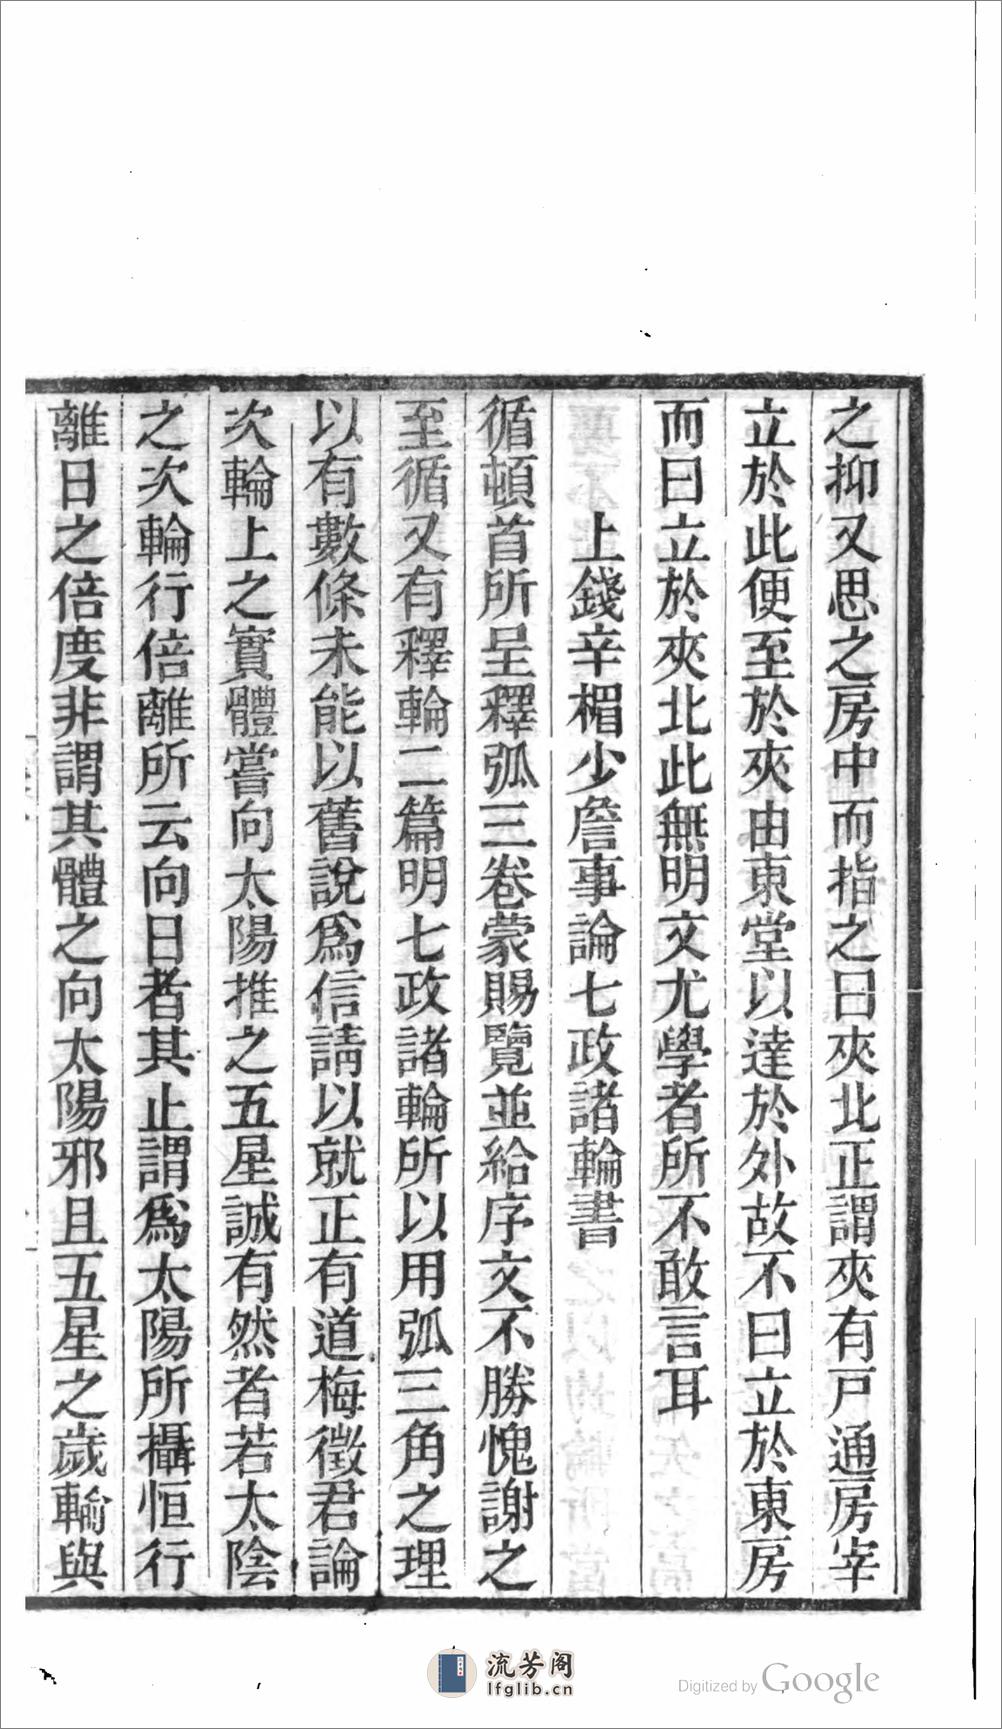 之抑又思之房中而指之曰夾北正謂夾有戸通房宰
立於此便至於夾由東堂以達於外故不曰立於東房
而曰立於夾北此無明文尤學者所不敢言耳
上錢辛楣少詹事論七政諸輪書
循頓首所呈釋弧三卷蒙賜覽並給序文不勝愧謝之
至循又有釋輪二篇明七政諸輪所以用弧三角之理
以有數條未能以舊說爲信請以就正有道梅徵君論
次輪上之實體嘗向太陽推之五星誠有然者若太陰
之次輪行倍離所云向日者其止謂爲太陽所攝恒行
離日之倍度非謂其體之向太陽邪且五星之歲輪與
流芳阁
lfglib.cn
Digitized by Google